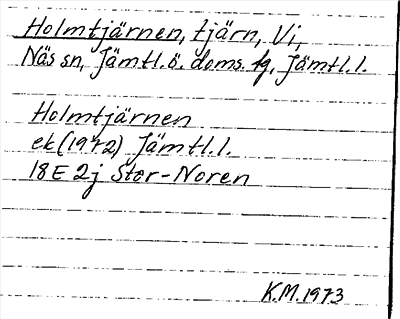 Holmtjärnen, tjärn, Vi,
Näs sn, Jämtl.ö. doms. tg, Jämtl.l.
Holmtjärnen
ek (1972) Jämtl.l.
18E 2j Stor-Noren
K.M. 1973